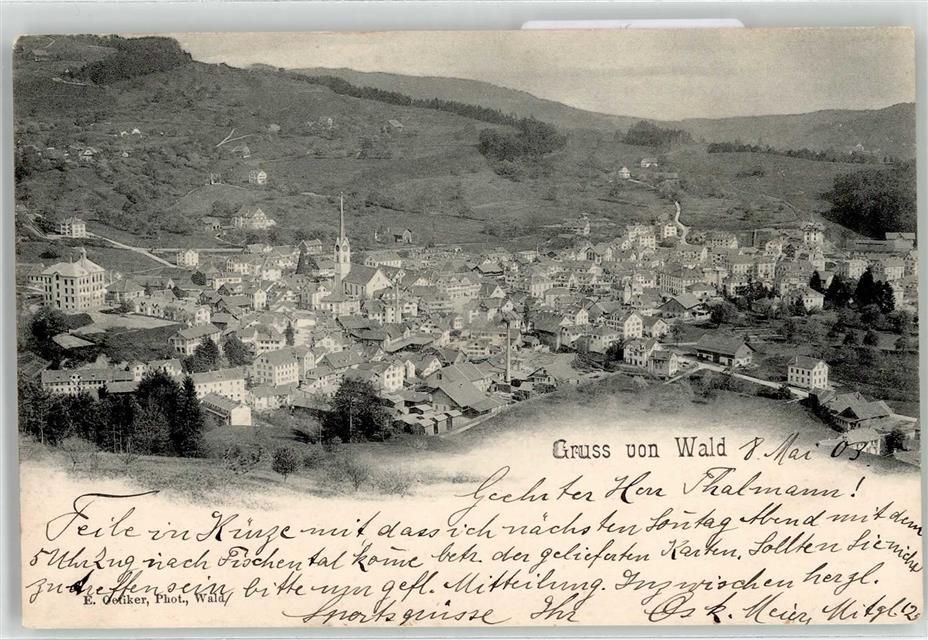 Gruss von Wald 8. Mai 03.
Geehrter Herr Thalmann!
Teile in Kürze mit, dass ich nächsten Sontag Abend mit dem
5 Uhr Zug nach Fischental kome betr. der gelieferten Karten, Sollten Sie nicht
zu treffen sein, bitte um gefl. Mitteilung. Inzwischen herzl.
E. Oetiker, Phot., Wald.
Sportsgrüsse Ihr Osk. Meier, Mitgl